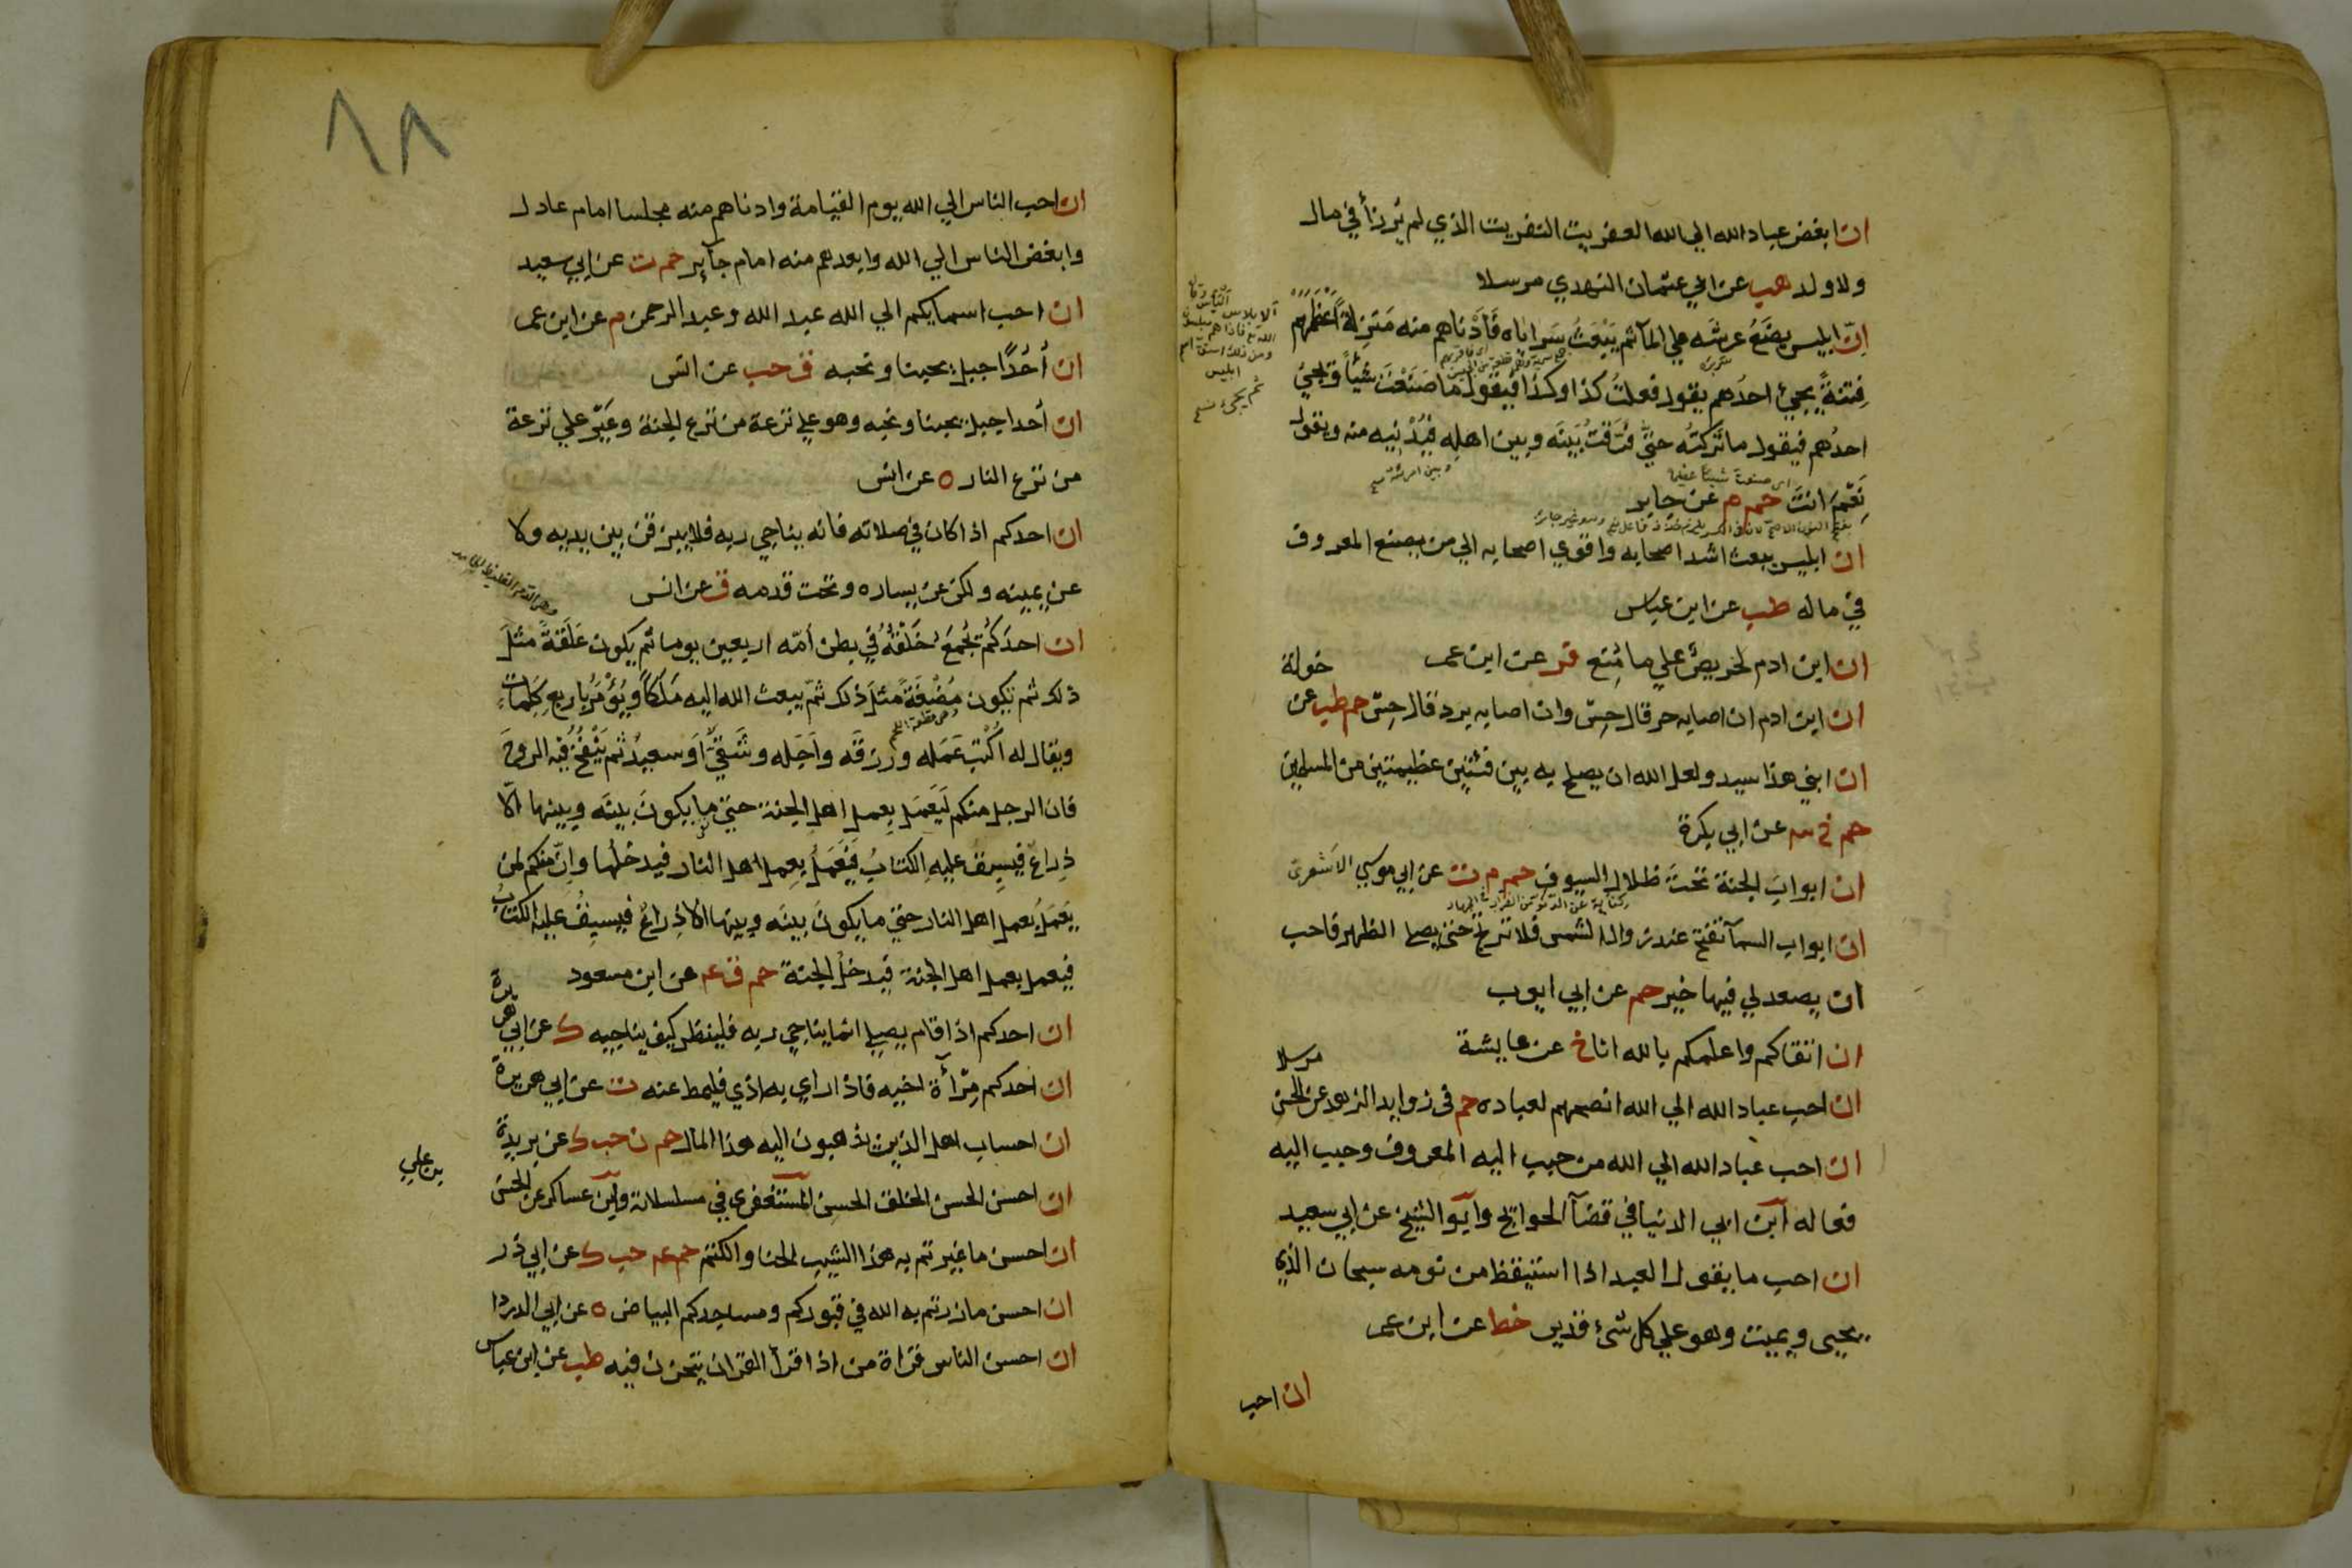 ان ابغض عباد الله الي الله العفريت النفريت الذي لم يُرزأ في مال
ولا ولد هب عن ابي عثمان النهدي مرسلا
اِنّ ابليس يضَعُ عرشَه علي المآ ثم يَبْعَثُ سَراياه فَأَدْناهم منه مَنزِلةً أعْظَمُهم
فِتنةً يجيئ احدُهم يقول فعلتُ كذا وكذا فيقول ما صَنَعْتَ شيًا ويجئ
احدُهم فيقول ما تَركتُه حتيَّ فرَّقتُ بَينَه وبين اهلِه فيُدْنِيه منه ويقول
وبين امرئته
نَعَمْ انتَ حم م عن جابر
ان ابليس يبعث اشد اصحابه واقوي اصحابه الي من يصنع المعروف
في ماله طب عن ابن عباس
ان ابن ادم لحريصٌ علي ما مُنِع فر عن ابن عمر
ان ابن ادم ان اصابه حر قال حِسّ وان اصابه برد قال حِسّ حم طب عن خولة
ان ابني هذا سيد ولعل الله ان يصلح به بين فئتين عظيمتين من المسلمين
حم خ عن ابي بكرة
ان ابوابَ الجنة تحتَ ظلال السيوف حم م ت عن ابي موسي الاشعري
ان ابواب السمآ تفتح عند زوال الشمس فلا ترتج حتي يصلي الظهر فاحب
ان يصعد لي فيها خير حم عن ابي ايوب
ان اتقاكم واعلمكم بالله انا خ عن عايشة
ان احب عباد الله الي الله انصحهم لعباده حم في زوايد الزهد عن الحسن مرسلا
ان احب عباد الله الي الله من حبب اليه المعروف وحبب اليه
فعاله ابن ابي الدنيا في قضآ الحوايج وابو الشيخ عن ابي سعيد
ان احب ما يقول العبد اذا استيقظ من نومه سبحان الذي
يحيى ويميت وهو علي كل شئ قدير خط عن ابن عمر
ان احب
٨٨
ان احب الناس الي الله يوم القيامة وادناهم منه مجلسا امام عادل
وابغض الناس الي الله وابعدهم منه امام جآير حم ت عن ابي سعيد
ان احب اسمايكم الي الله عبد الله وعبد الرحمن م عن ابن عمر
ان أُحُدًا جبل يحبنا ونحبه ق حب عن انس
ان أحدا جبل يحبنا ونحبه وهو علي ترعة من ترع الجنة وعَيْر علي ترعة
من ترع النار ه عن انس
ان احدكم اذا كان في صلاته فانه يناجي ربه فلا يبزقن بين يديه ولا
عن يمينه ولكن عن يساره وتحت قدمه ق عن انس
ان احدَكُم يُجْمَعُ خَلْقُهُ في بطن أمّه اربعين يوما ثم يكون عَلَقةً مثلَ
ذلك ثم تكون مُضْغَةً مثلَ ذلك ثمّ يبعث الله اليه مَلَكاً ويُؤمَرُ باربع كَلِمات
ويقال له اُكْتب عَمَله ورزقَه وأجَله وشَقِيٌّ أو سعيدٌ ثم يَنْفُخُ فيه الروحَ
فان الرجل منكم لَيَعمَل بِعمل اهل الجنة حتي ما يكونَ بينَه وبينها الّا
ذِراعٌ فيسبِق عليهِ الكتابُ فيَعْمَلُ بِعمل اهل النار فيدخلُها واِنّ منكم لمن
يَعمَلُ بعمل اهل النار حتي ما يكونَ بينَه وبينها الا ذِراعٌ فيسبِقُ عليه الكتابُ
فيعمل بعمل اهل الجنة فيدخلُ الجنة حم ق عه عن ابن مسعود
ان احدكم اذا قام يصلي انما يناجي ربه فلينظر كيف يناجيه ك عن ابي هريرة
ان احدكم مِرْأة اخيه فاذا راي به اذي فليمط عنه ت عن ابي هريرة
ان احساب اهل الذين يذهبون اليه هذا المال حم ن حب ك عن بريدة
ان احسن الحسن الخلق الحسن المستغفري في مسلسلاته وابن عساكر عن الحسن بن علي
ان احسن ما غيرتم به هذا الشيب الحنا والكتم حم عه حب ك عن ابي ذر
ان احسن ما زرتم به الله في قبوركم ومساجدكم البياض ه عن ابي الدردا
ان احسن الناس قراة من اذا قرأ القران يتحزن فيه طب عن ابن عباس